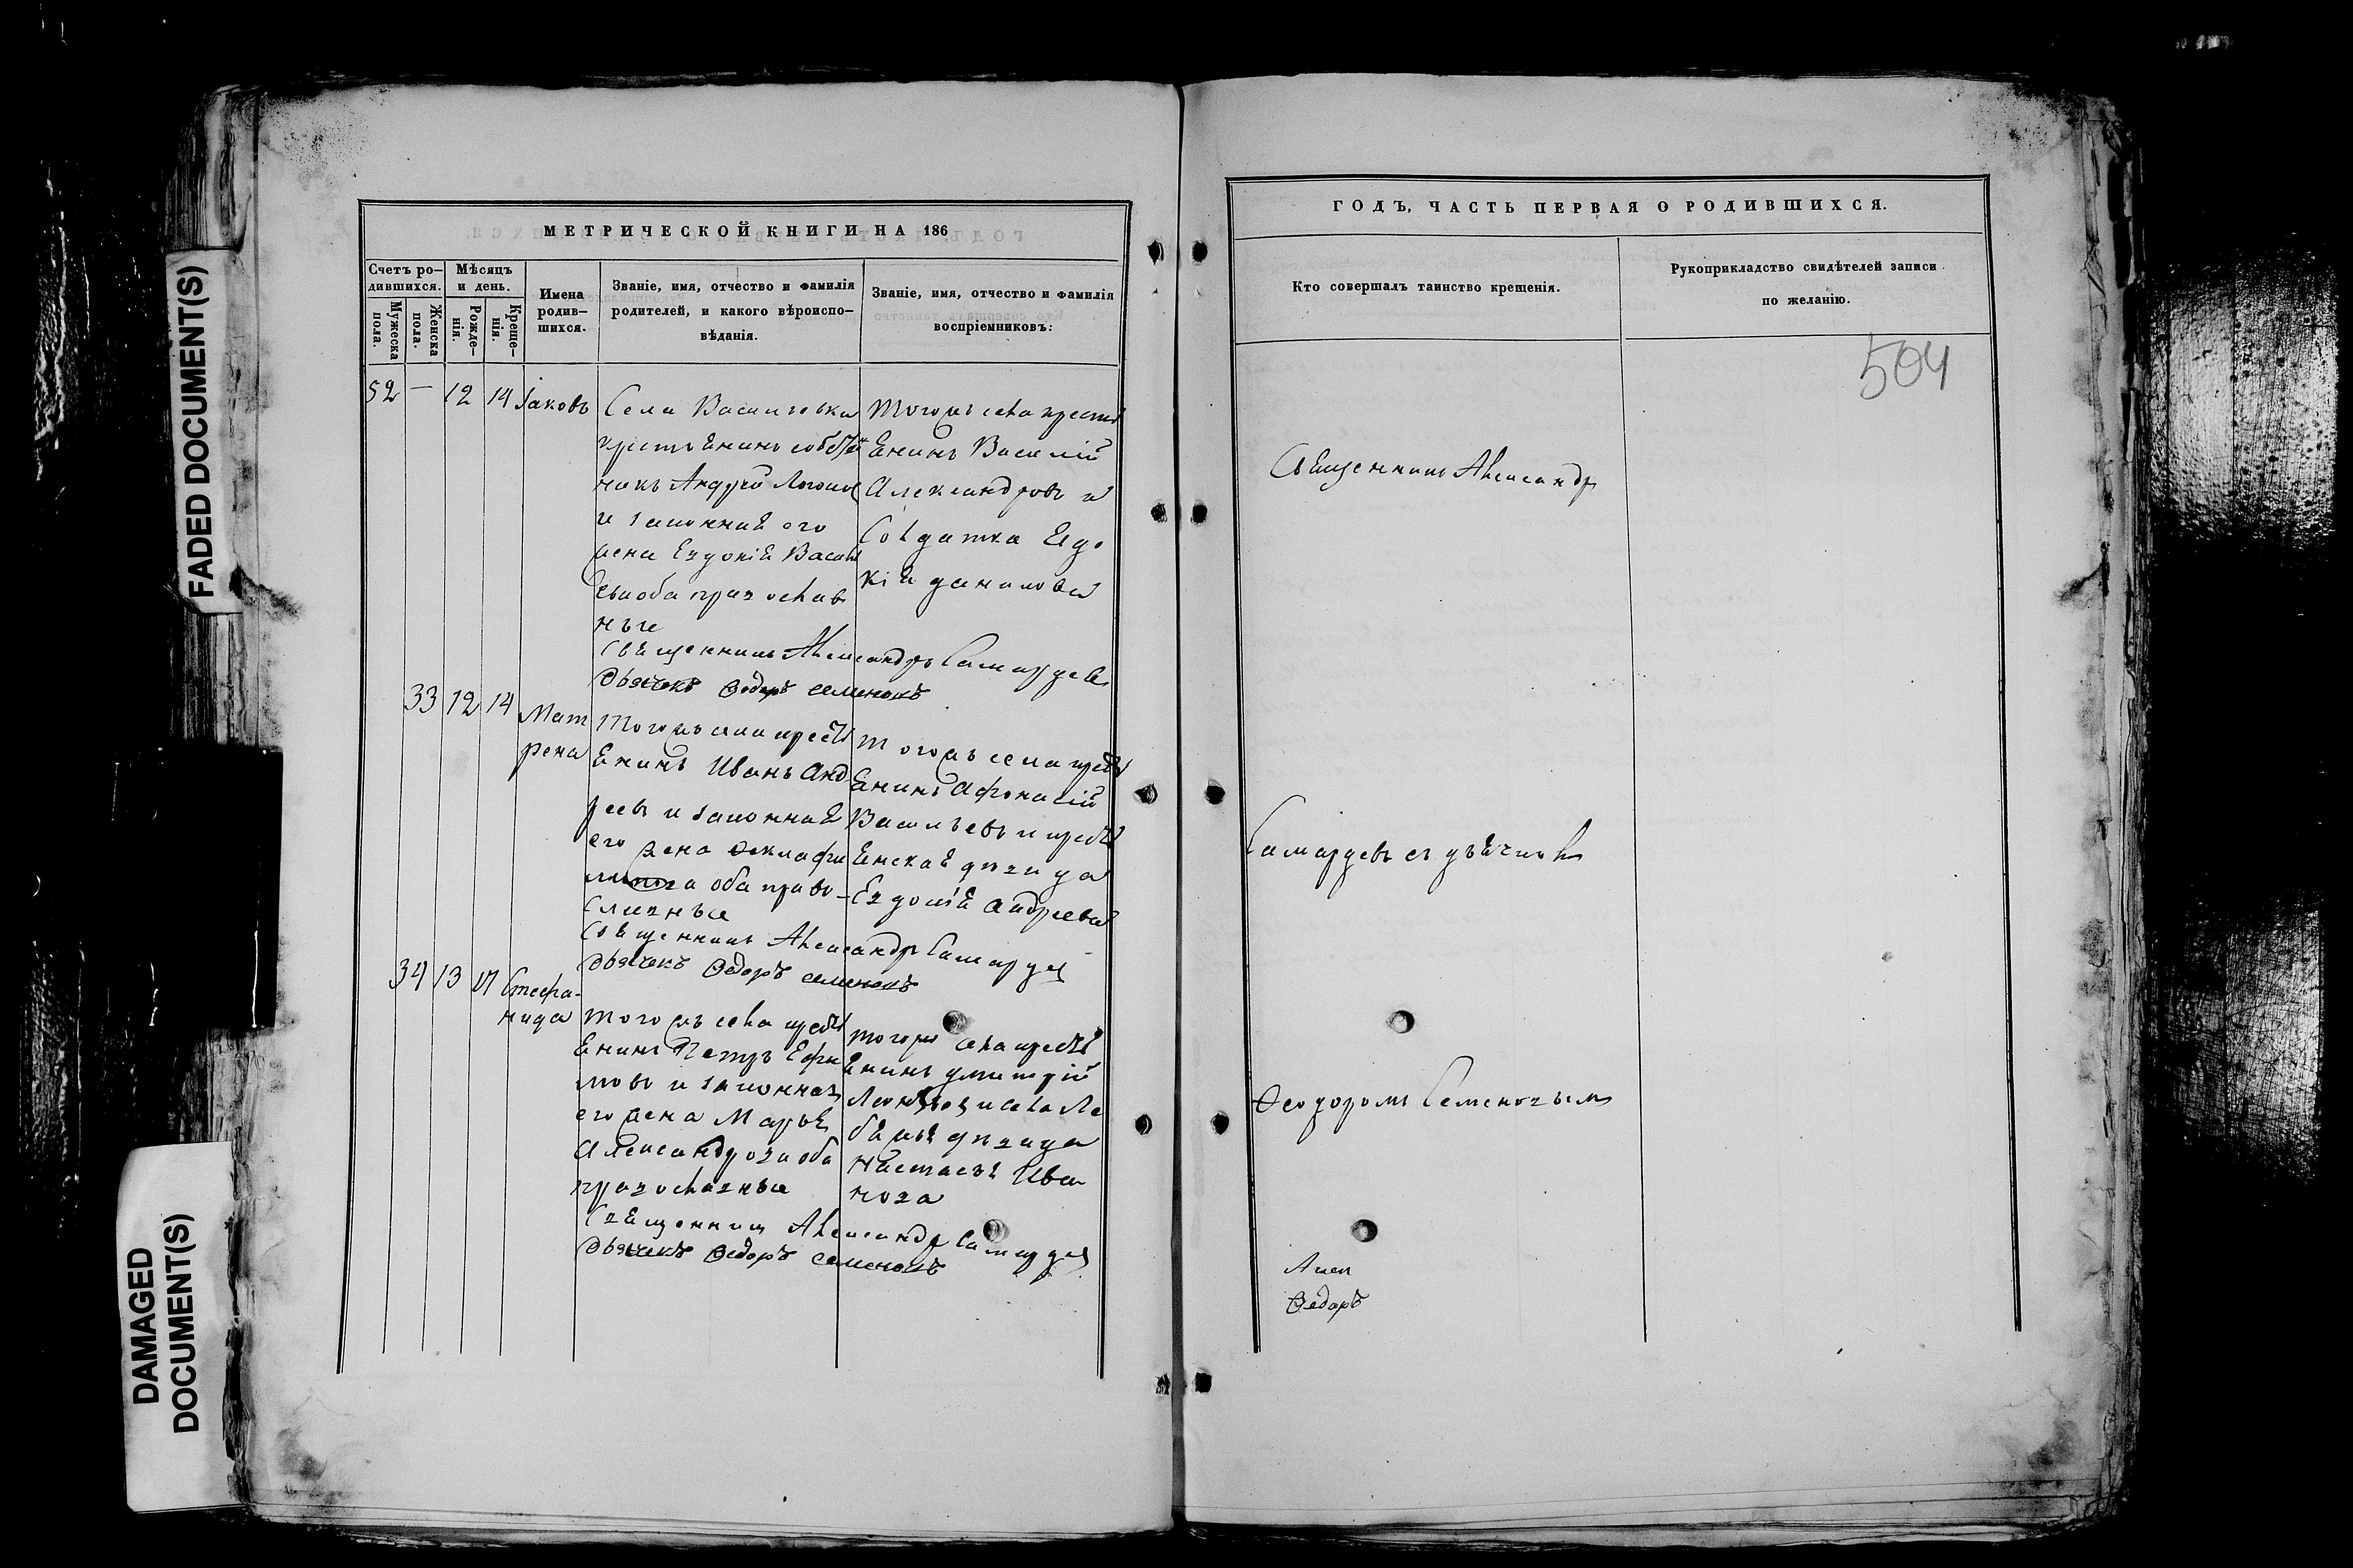 FADED DOCUMENT(S)
DAMAGED
DOCUMENT(S)
МЕТРИЧЕСКОЙ КНИГИ НА 186
Счетъ ро-
дившихся.
Мужеска
пола.
Женска
пола.
Мѣсяцъ
и день.
Рожде-
нія.
Креще-
нія.
Имена
родив-
шихся.
Званіе, имя, отчество и фамилія
родителей, и какого вѣроиспо-
вѣданія.
Званіе, имя, отчество и фамилія
воспріемниковъ:
52 — 12 14 Іаковъ
Села
крестьянинъ
Андрей
и законная его
жена Евдокія Васил
оба православ
ные
Тогожъ села крестья
янинъ Василій
Александровъ и
Солдатка Евдо
кія Данилова
Священникъ Александръ Самарцевъ
Дьячекъ Ѳедоръ Семеновъ
33 12 14 Мат
рена
Тогожъ села кресть
янинъ Иванъ Анд
реевъ и законная
его жена
оба право-
славные
Тогожъ села кресть
янинъ Афонасій
Васильевъ и кресть
янская дѣвица
Евдокія Андреева
Священникъ Александръ Самарцевъ
Дьячекъ Ѳедоръ Семеновъ
34 13 17 Стефа-
нида
Тогожъ села кресть
янинъ Петръ Ефи
мовъ и законная
его жена Марья
Александрова оба
православные
Тогожъ села кресть
янинъ Дмитрій
и села Ле
бяжья дѣвица
Настасья Ива
нова
Священникъ Александръ Самарцевъ
Дьячекъ Ѳедоръ Семеновъ
ГОДЪ, ЧАСТЬ ПЕРВАЯ О РОДИВШИХСЯ.
Кто совершалъ таинство крещенія.
Рукоприкладство свидѣтелей записи
по желанію.
504
Священникъ Александръ
Самарцевъ съ дьячкомъ
Ѳеодоромъ Семеновымъ
Ѳедоръ